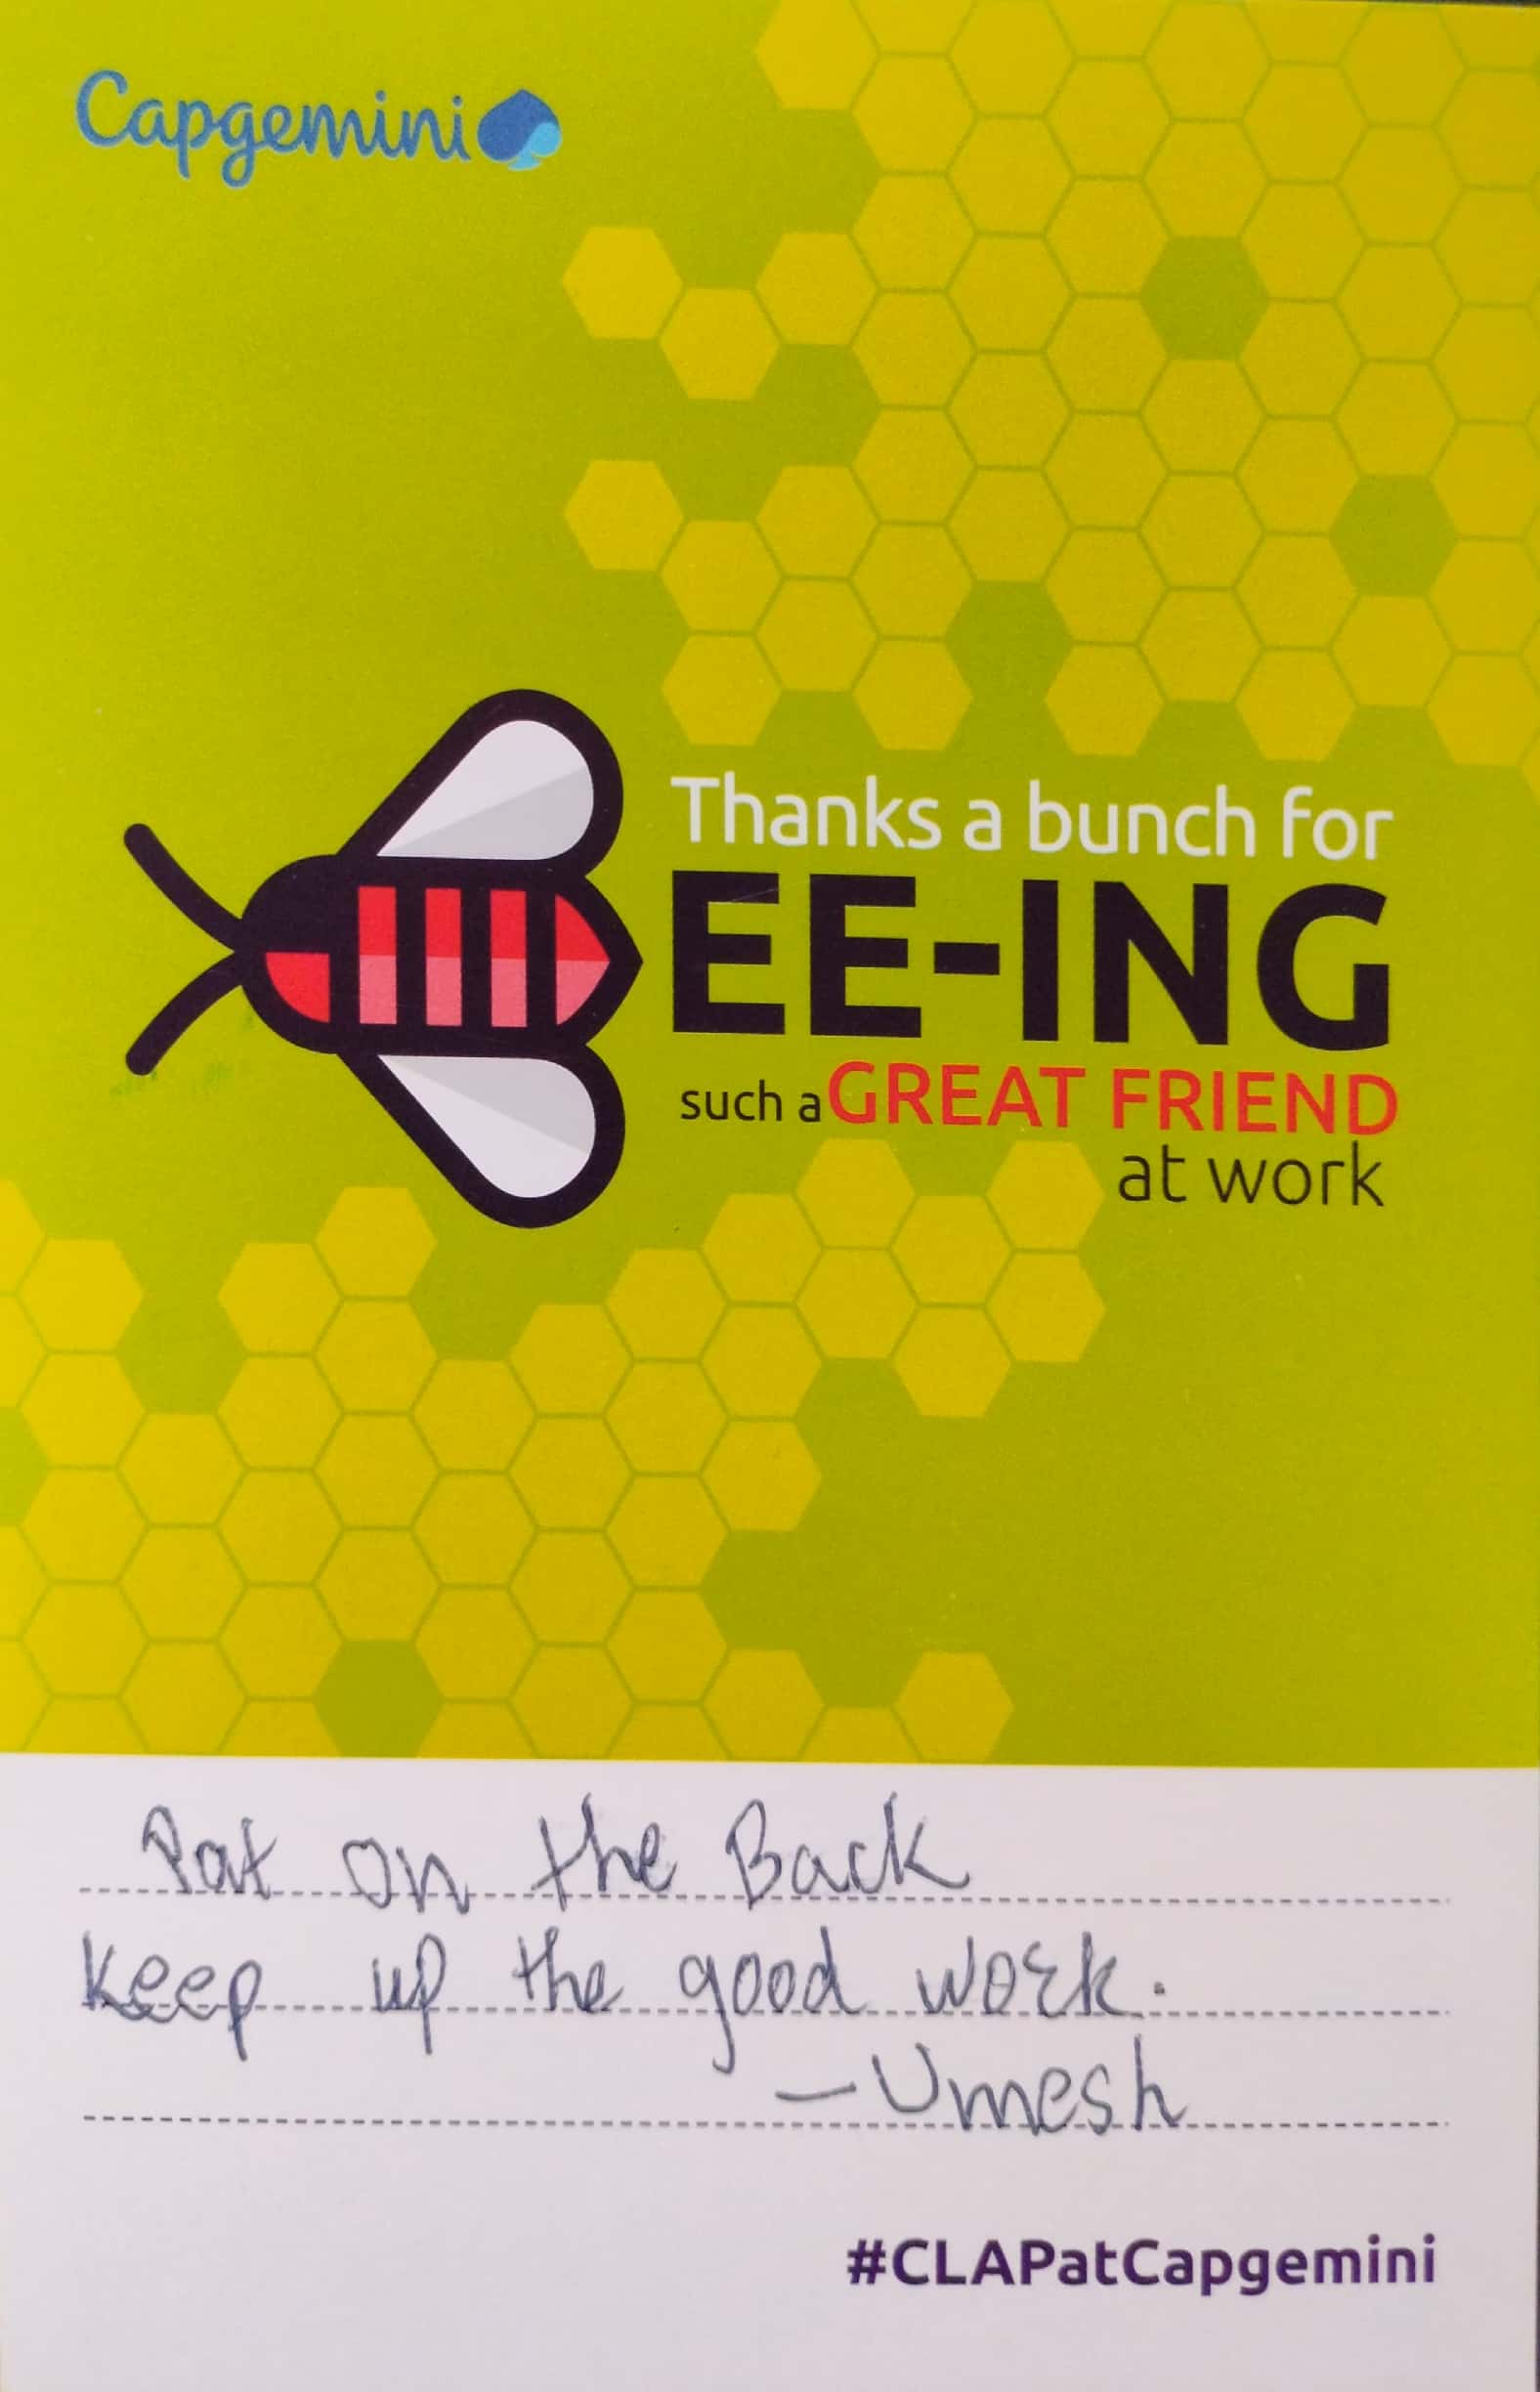 Capgemini
Thanks a bunch for
EE-ING
such a GREAT FRIEND
at work
Pat on the Back
Keep up the good work.
- Umesh
#CLAPatCapgemini